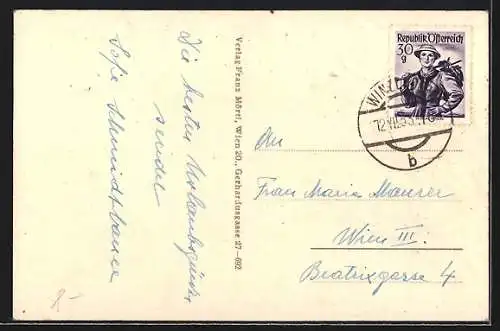 Die besten Urlaubsgrüße
sendet
Sofie Schmidtbauer
Verlag Franz Mörtl, Wien 20., Gerhardusgasse 27-692
Republik Österreich
30
g
b
An
Frau Maria Maurer
Wien III.
Beatrixgasse 4
8-